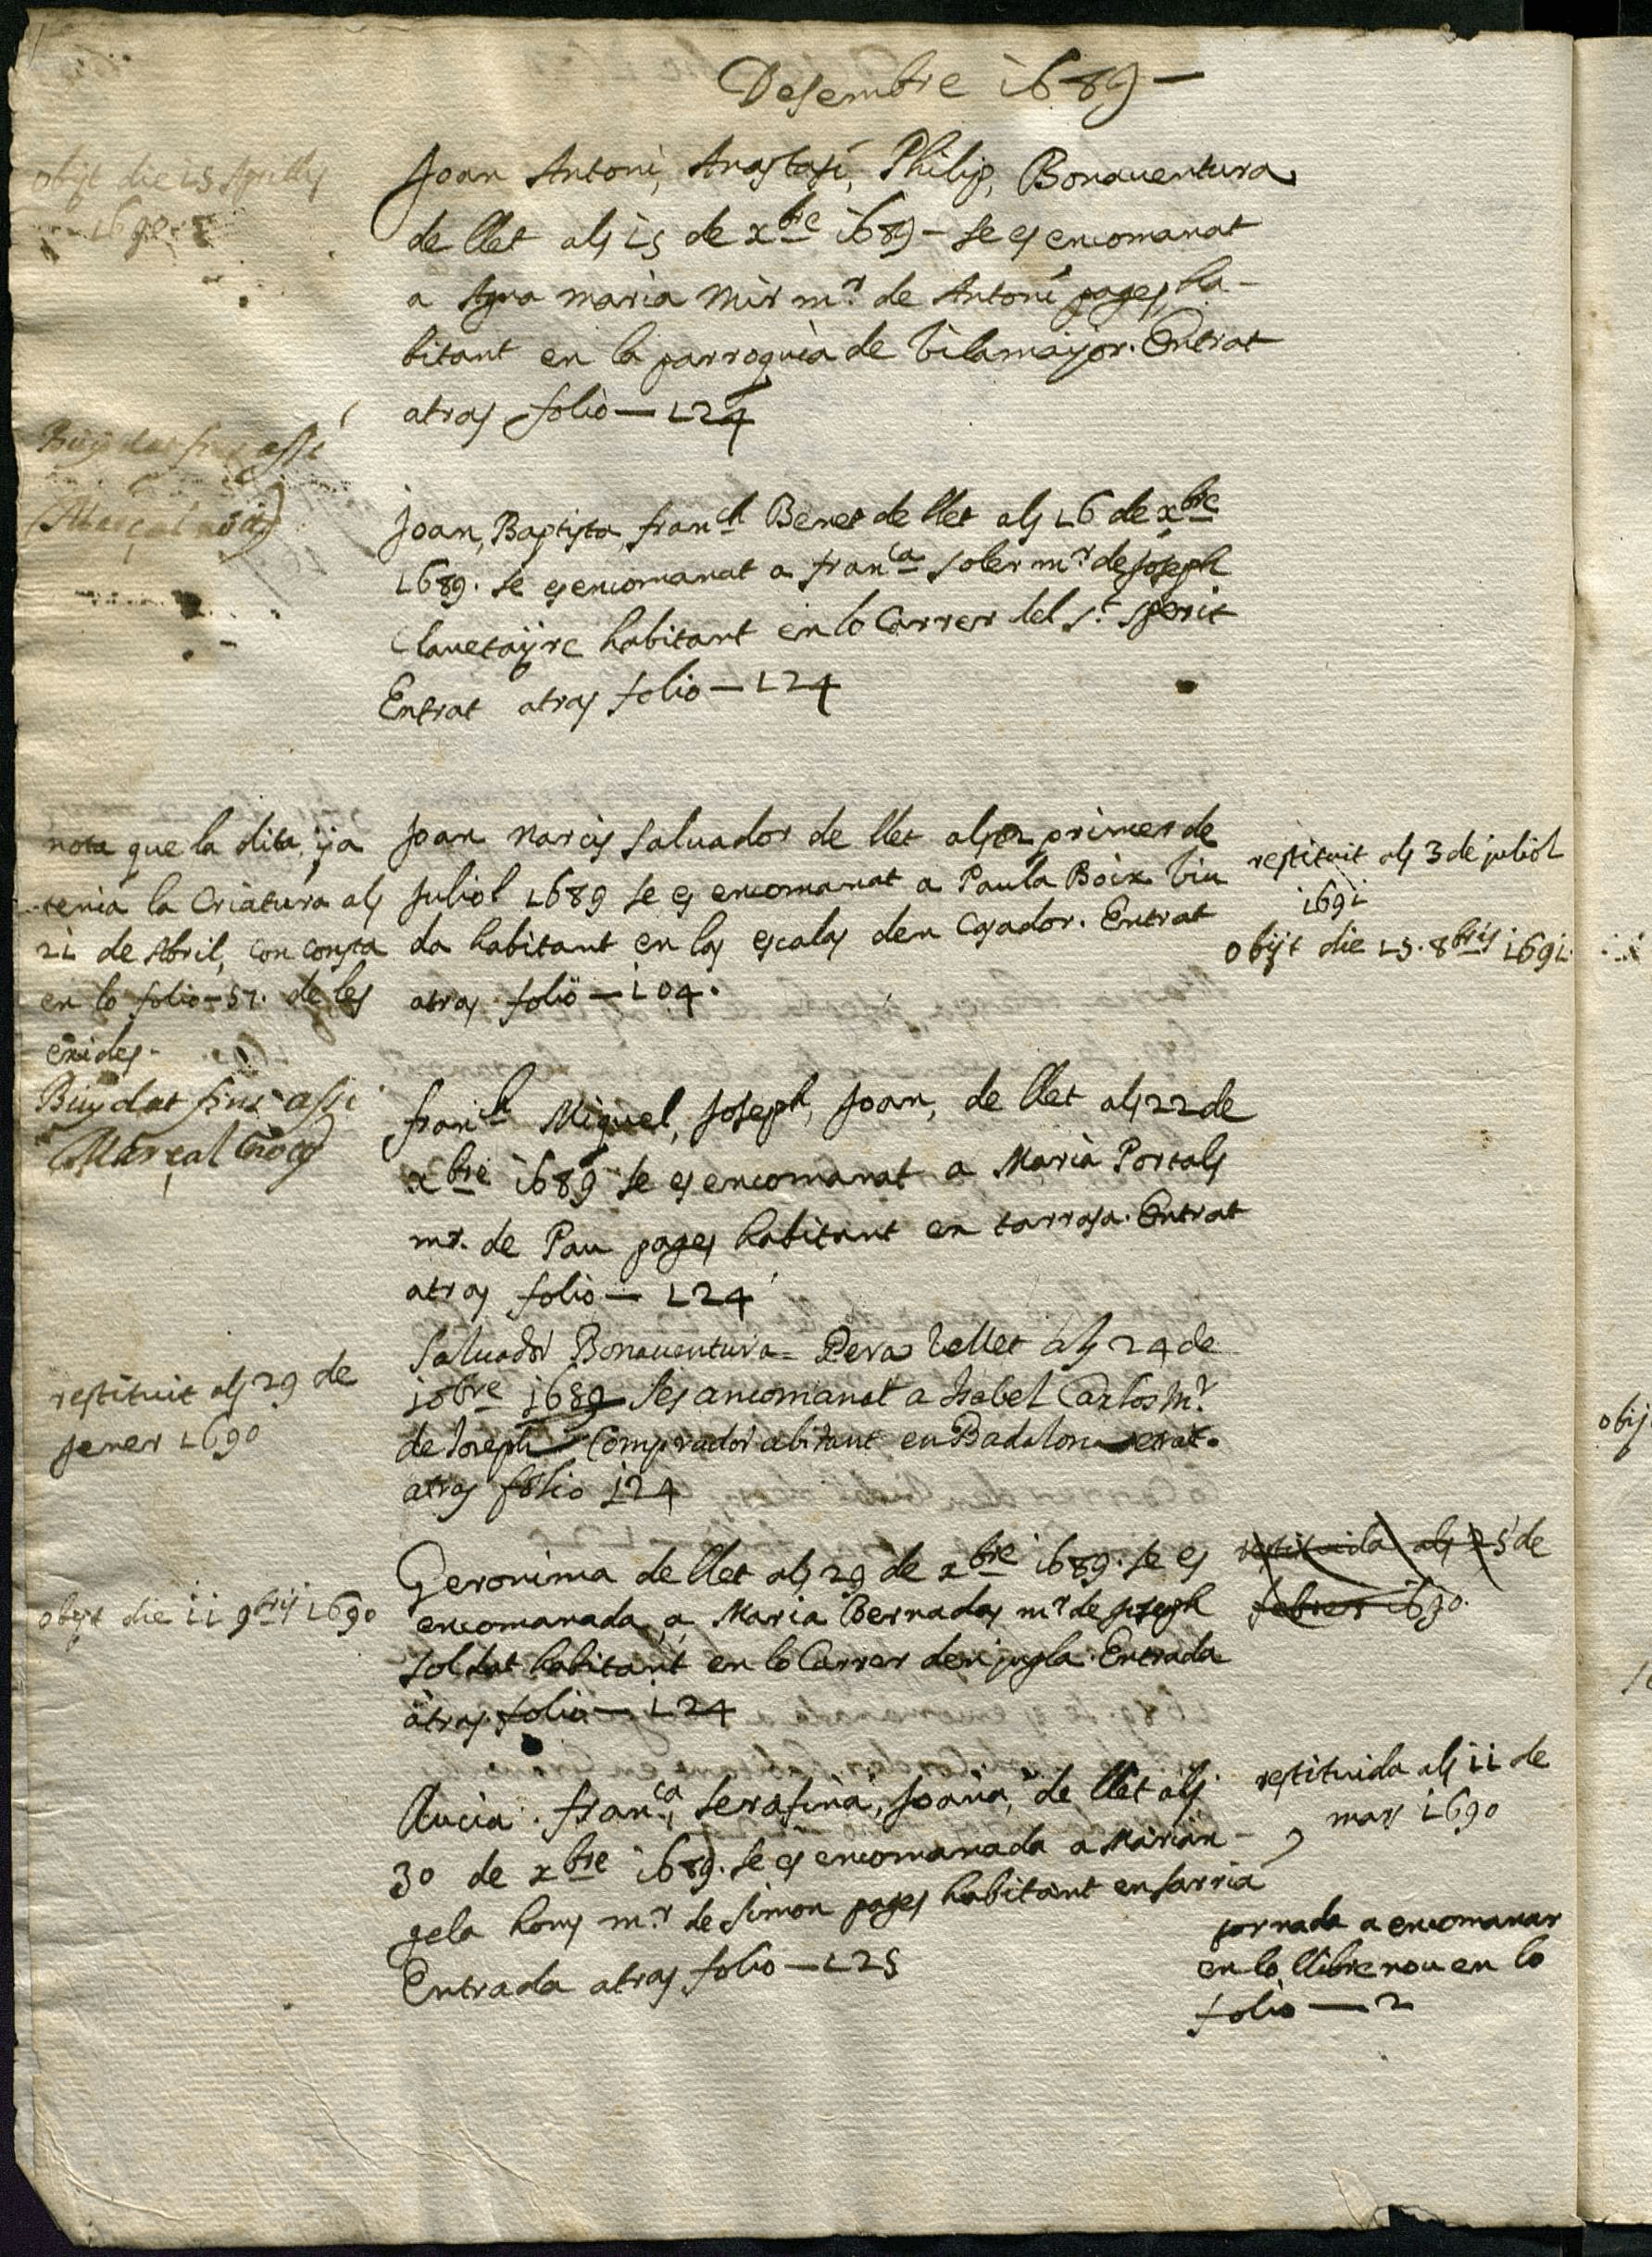 Desembre 1689 —
obijt die 15 Aprilis
1690
Joan Antoni, Anastasi, Philip, Bonauentura
de llet als 15 de xbre 1689 — se es encomanat
a Agna maria Mir mr. de Antoni pages ha-
bitant en la parroquia de Vilamajor. Entrat
atras folio — 124
Buydat fins assi
Joan, Baptista, franch Benet de llet als 16 de xbre
1689. se es encomanat a franca soler mr. de Joseph
Clauetayre habitant en lo Carrer del St. Sperit
Entrat atras folio — 124
nota que la dita ija
tenia la Criatura als
21 de Abril, con consta
en lo folio — 57. de les
exides —
Joan Narcis saluador de llet als primer de
Juliol 1689 se es encomanat a Paula Boix Viu
da habitant en las escalas den Casador. Entrat
atras folio — 104.
restituit als 3 de juliol
1691
obijt die 15. 8bris 1691.
Buydat fins assi
franch Miquel, Joseph, Joan, de llet als 22 de
xbre 1689 se es encomanat a Maria Portals
mr. de Pau pages habitant en tarrasa. Entrat
atras folio — 124
restituit als 29 de
jener 1690
Saluador Bonauentura Pera de llet als 24 de
10bre 1689 ses ancomanat a Isabel Carlos Mr.
de Joseph Comprador abitant en Badalona
atras folio 124
obijt die 11 9bris 1690
Geronima de llet als 29 de xbre 1689. se es
encomanada a Maria Bernadas mr. de Joseph
soldat habitant en lo Carrer den jupla. Entrada
atras folio — 124
restituida als 25 de
febrer 1690.
Llucia. franca, serafina, Joana, de llet als
30 de xbre 1689. se es encomanada a Marian-
gela homs mr. de Simon pages habitant en sarria
Entrada atras folio — 125
restituida als 11 de
mars 1690
tornada a encomanar
en lo llibre nou en lo
folio — 2